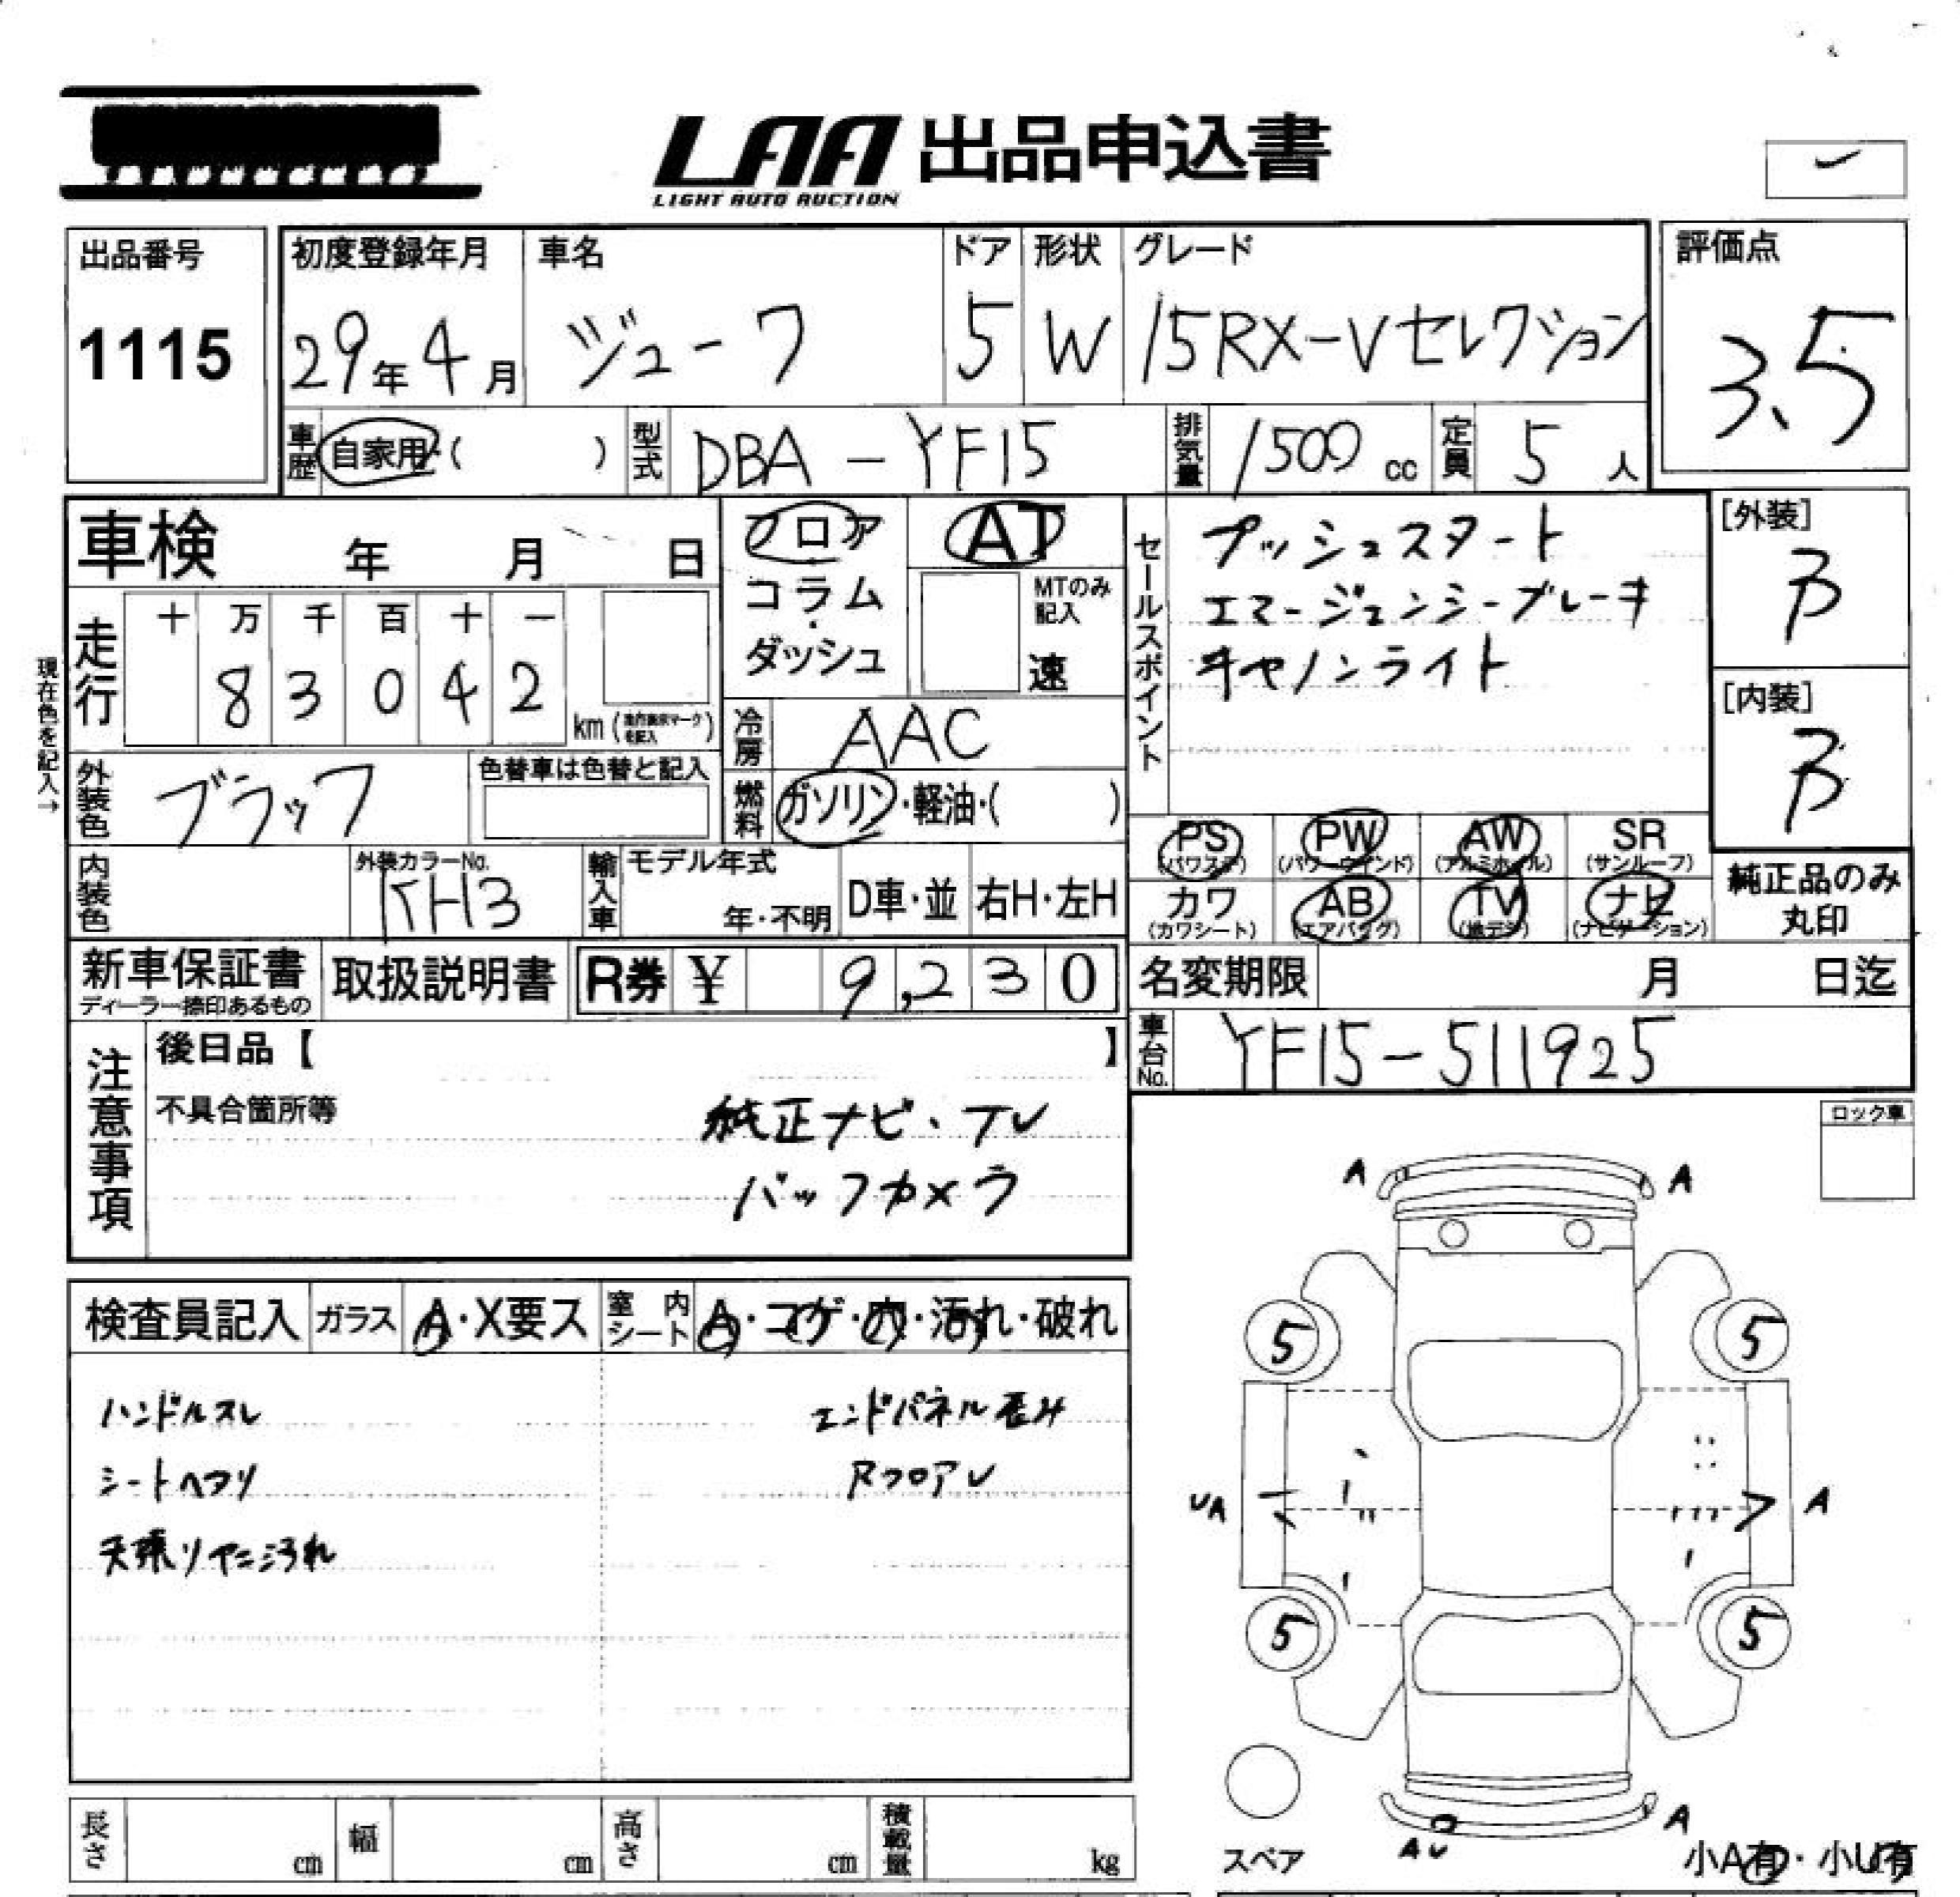 LAA 出品申込書
LIGHT AUTO AUCTION
出品番号
1115
初度登録年月
29年4月
車名
ジューク
ドア
5
形状
W
グレード
15RX-Vセレクション
評価点
3.5
車歴
自家用・( )
型式
DBA-YF15
排気量
1500cc
定員
5人
車検 年 月 日
フロア
コラム・
ダッシュ
AT
MTのみ
記入
速
セールスポイント
プッシュスタート
エマージェンシーブレーキ
キャノンライト
[外装]
B
[内装]
B
現在色を記入→
走行
十 万 千 百 十 一
8 3 0 4 2
km(
)
冷房
AAC
外装色
ブラック
色替車は色替と記入
燃料
ガソリン・軽油・( )
PS
(パワステ)
PW
(パワーウインド)
AW
(アルミホイル)
SR
(サンルーフ)
カワ
(カワシート)
AB
(エアバッグ)
TV
(地デジ)
ナビ
(ナビゲーション)
純正品のみ
丸印
内装色
外装カラーNo.
KH3
輸入車
モデル年式
年・不明
D車・並
右H・左H
新車保証書
ディーラー捺印あるもの
取扱説明書
R券 ¥ 9,230
名変期限 月 日迄
車台No.
YF15-511925
注意事項
後日品【 】
不具合箇所等
純正ナビ、TV
バックカメラ
ロック車
A A
検査員記入
ガラス
A・X要ス
室内シート
A・コゲ・穴・汚れ・破れ
ハンドルスレ
エンドパネル歪み
シートヘコリ
RフロアU
天張リヤニ汚れ
5 5
UA A
5 5
A
AU
スペア
小A有・小U有
長さ cm
幅 cm
高さ cm
積載量 kg